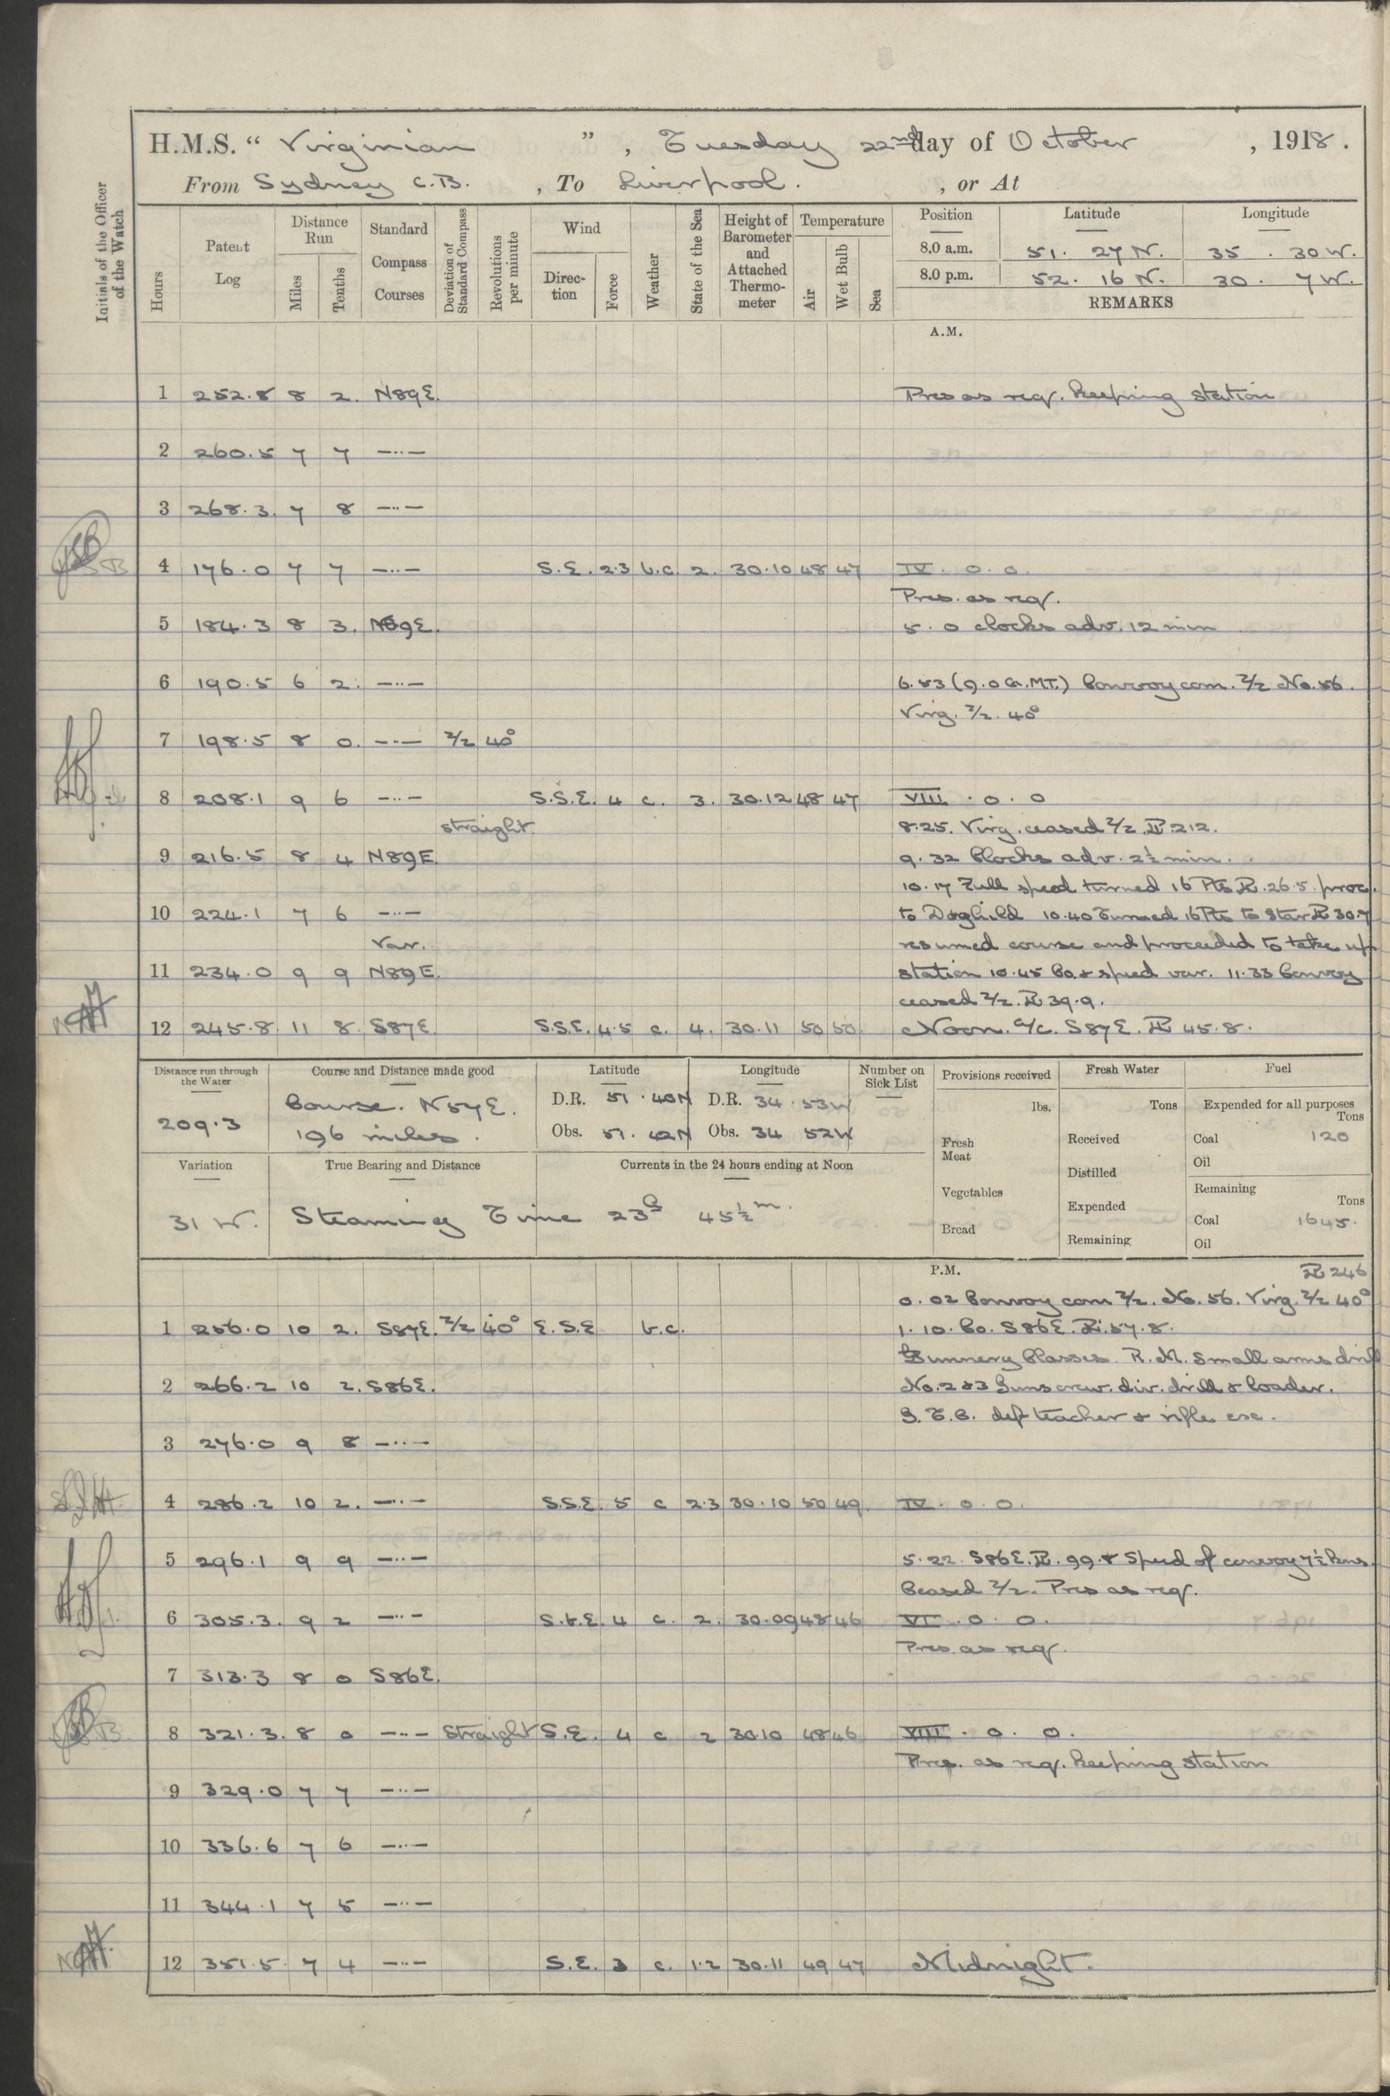 H.M.S. " Virginian ", Tuesday 22nd day of October, 1918.
From Sydney C.B., To Liverpool., or At
Initials of the Officer of the Watch
Hours
Patent Log
Distance Run
Miles
Tenths
Standard Compass Courses
Deviation of Standard Compass
Revolutions per minute
Wind
Direction
Force
Weather
State of the Sea
Height of Barometer and Attached Thermometer
Temperature
Air
Wet Bulb
Sea
Position Latitude Longitude
8.0 a.m. 51. 27 N. 35. 30 W.
8.0 p.m. 52. 16 N. 30. 7 W.
REMARKS
A.M.
1 252.8 8 2. N89E. Pres as req. keeping station
2 260.5 7 7 —..—
3 268.3. 7 8 —..—
4 176.0 7 7 —..— S.E. 2.3 b.c. 2. 30.10 48 47 IV. 0. 0.
Pres. as req.
5 184.3 8 3. N89E. 5.0 clocks adv. 12 min
6 190.5 6 2. —..— 6.53 (9.0 G.M.T.) Convoy com. Z/Z No. 56.
Virg. Z/Z. 40°
7 198.5 8 0. —..— Z/Z 40°
8 208.1 9 6 —..— S.S.E. 4 c. 3. 30.12 48 47 VIII. 0. 0
straight. 8.25. Virg. ceased Z/Z. PL 212.
9 216.5 8 4 N89E 9.32 Clocks adv. 2½ min.
10.17 Full speed turned 16 Pts PL. 26.5. proc.
10 224.1 7 6 —..— to Dogfield 10.40 Turned 16 Pts to Star PL 30.7
Var. resumed course and proceeded to take up
11 234.0 9 9 N89E. station 10.45 Co. & speed var. 11.33 Convoy
ceased Z/Z. PL 39.9.
12 245.8 11 8. S87E. S.S.E. 4.5 c. 4. 30.11 50 50 Noon. A/c. S87E. PL 45.8.
Distance run through the Water
209.3
Course and Distance made good
Course. N57E.
196 miles.
Latitude
D.R. 51. 40N
Obs. 51. 42N
Longitude
D.R. 34. 53W
Obs. 34 52W
Number on Sick List
—
Variation
31 W.
True Bearing and Distance
Currents in the 24 hours ending at Noon
Steaming Time 23h 45½m.
Provisions received
lbs.
Fresh Meat
Vegetables
Bread
Fresh Water
Tons
Received
Distilled
Expended
Remaining
Fuel
Expended for all purposes
Tons
Coal 120
Oil
Remaining
Tons
Coal 1645.
Oil
P.M. PL 246
0.02 Convoy com Z/Z. No. 56. Virg. Z/Z 40°
1 256.0 10 2. S87E. Z/Z 40° E.S.E b.c. 1.10. Co. S86E. PL. 57.8.
Gunnery Classes. R.M. Small arms drill
2 266.2 10 2. S86E. No. 2 & 3 Guns crew. div. drill & loader.
G.T.C. def teacher & rifle exe.
3 276.0 9 8 —..—
4 286.2 10 2. —..— S.S.E. 5 c 2.3 30.10 50 49. IV. 0. 0.
5 296.1 9 9 —..— 5.22. S86E. PL. 99.8 Speed of convoy 7½ kns.
Ceased Z/Z. Pres as req.
6 305.3. 9 2 —..— S.b.E. 4 c. 2. 30.09 48 46 VI. 0. 0.
Pres. as req.
7 313.3 8 0 S86E.
8 321.3. 8 0 —..— Straight S.E. 4 c 2 30.10 48 46 VIII. 0. 0.
Pres. as req. keeping station
9 329.0 7 7 —..—
10 336.6 7 6 —..—
11 344.1 7 5 —..—
12 351.5 7 4 —..— S.E. 3 c. 1.2 30.11 49 47 Midnight.